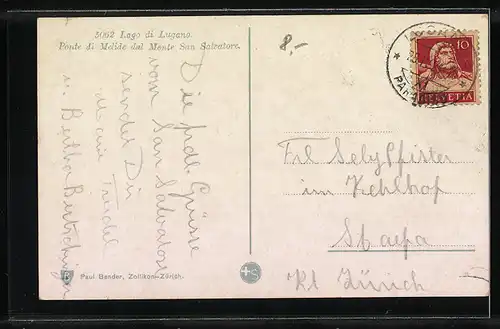 5092 Lago di Lugano.
Ponte di Melide dal Monte San Salvatore.
8.-
10
HELVETIA
Die frdl. Grüsse
vom San Salvatore
sendet Dir
Deine Trudel
u. Bertha Bertschinger
Frl Sely Pfister
im Kehlhof
Stäfa
Kt Zürich
Paul Bender, Zollikon-Zürich.